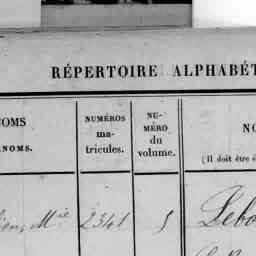 RÉPERTOIRE ALPHABÉT
OMS
NOMS.
NUMÉROS
ma-
tricules.
NU-
MÉRO
du
volume.
NO
(Il doit être é
Mie 2341 5 Lebo